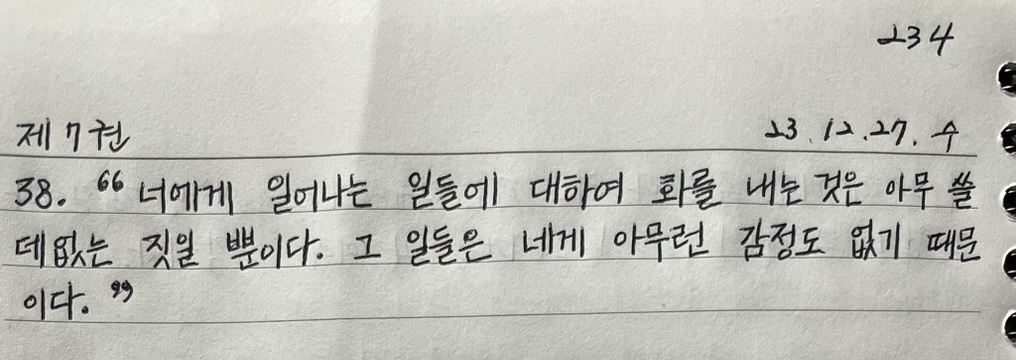 234
제 7권 23.12.27. 수
38. “너에게 일어나는 일들에 대하여 화를 내는 것은 아무 쓸
데없는 짓일 뿐이다. 그 일들은 네게 아무런 감정도 없기 때문
이다.”